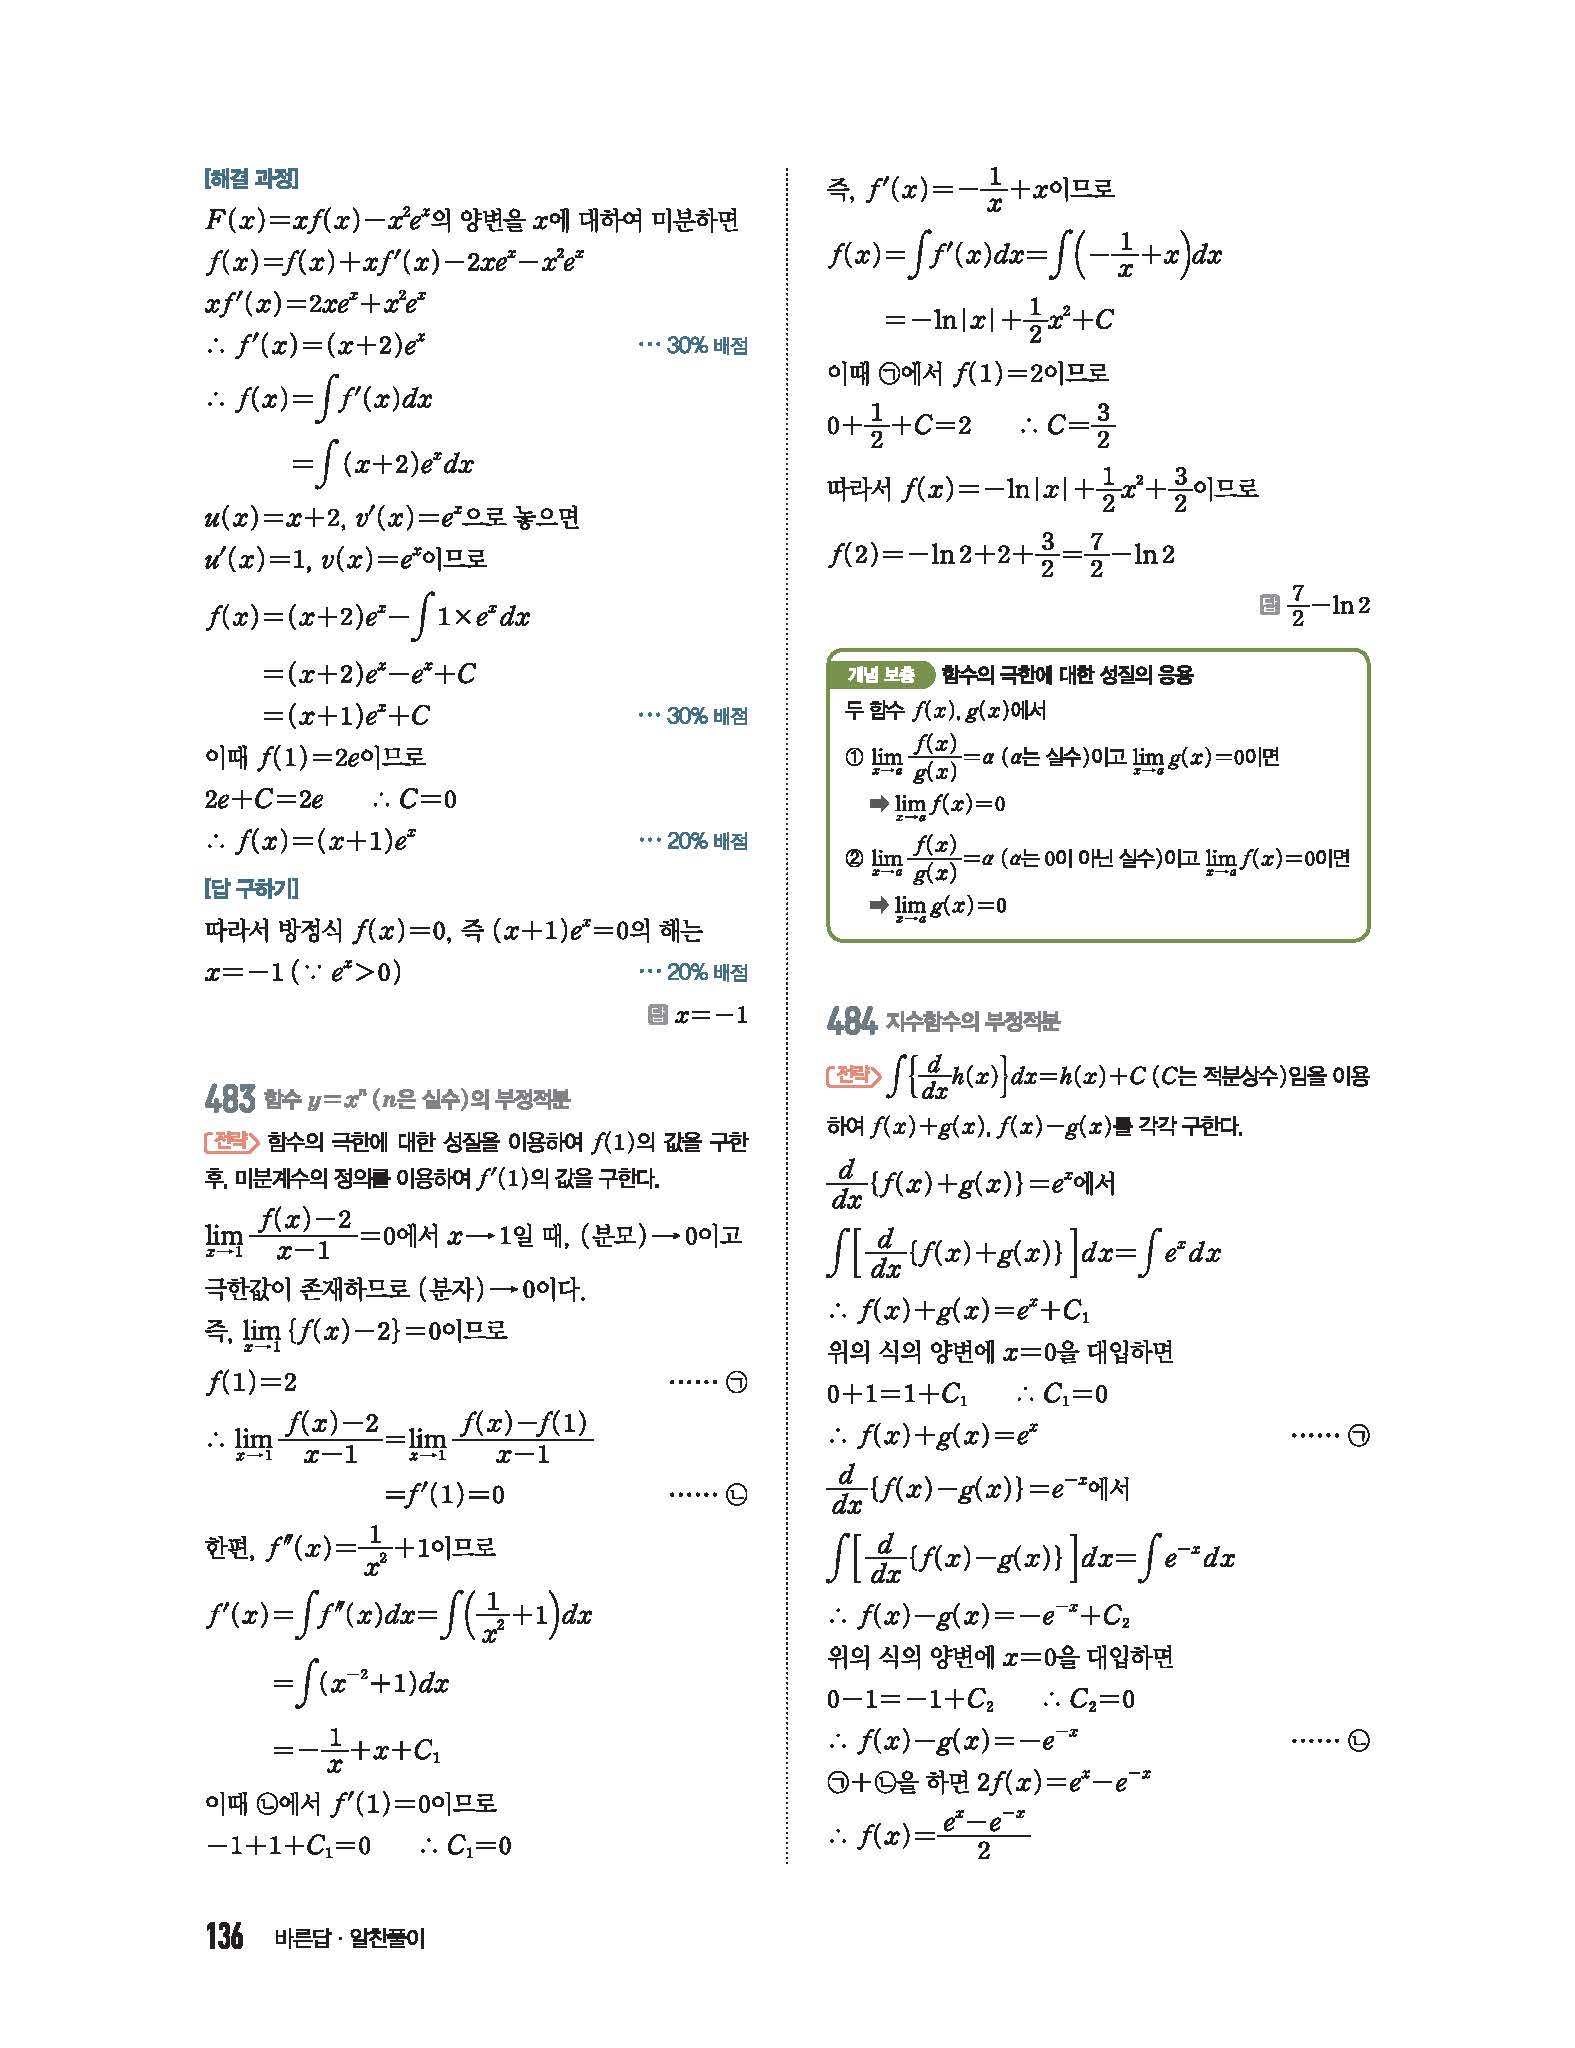 [해결 과정]
F(x)=xf(x)-x²eˣ의 양변을 x에 대하여 미분하면
f(x)=f(x)+xf′(x)-2xeˣ-x²eˣ
xf′(x)=2xeˣ+x²eˣ
∴ f′(x)=(x+2)eˣ ··· 30% 배점
∴ f(x)=∫f′(x)dx
=∫(x+2)eˣdx
u(x)=x+2, v′(x)=eˣ으로 놓으면
u′(x)=1, v(x)=eˣ이므로
f(x)=(x+2)eˣ-∫1×eˣdx
=(x+2)eˣ-eˣ+C
=(x+1)eˣ+C ··· 30% 배점
이때 f(1)=2e이므로
2e+C=2e ∴ C=0
∴ f(x)=(x+1)eˣ ··· 20% 배점
[답 구하기]
따라서 방정식 f(x)=0, 즉 (x+1)eˣ=0의 해는
x=-1 (∵ eˣ>0) ··· 20% 배점
답 x=-1
483 함수 y=xⁿ (n은 실수)의 부정적분
전략 함수의 극한에 대한 성질을 이용하여 f(1)의 값을 구한
후, 미분계수의 정의를 이용하여 f′(1)의 값을 구한다.
lim_{x→1} (f(x)-2)/(x-1)=0에서 x→1일 때, (분모)→0이고
극한값이 존재하므로 (분자)→0이다.
즉, lim_{x→1} {f(x)-2}=0이므로
f(1)=2 ······ ㉠
∴ lim_{x→1} (f(x)-2)/(x-1)=lim_{x→1} (f(x)-f(1))/(x-1)
=f′(1)=0 ······ ㉡
한편, f″(x)=1/x²+1이므로
f′(x)=∫f″(x)dx=∫(1/x²+1)dx
=∫(x⁻²+1)dx
=-1/x+x+C₁
이때 ㉡에서 f′(1)=0이므로
-1+1+C₁=0 ∴ C₁=0
즉, f′(x)=-1/x+x이므로
f(x)=∫f′(x)dx=∫(-1/x+x)dx
=-ln|x|+1/2x²+C
이때 ㉠에서 f(1)=2이므로
0+1/2+C=2 ∴ C=3/2
따라서 f(x)=-ln|x|+1/2x²+3/2이므로
f(2)=-ln 2+2+3/2=7/2-ln 2
답 7/2-ln 2
개념 보충 함수의 극한에 대한 성질의 응용
두 함수 f(x), g(x)에서
① lim_{x→a} f(x)/g(x)=α (α는 실수)이고 lim_{x→a} g(x)=0이면
➡ lim_{x→a} f(x)=0
② lim_{x→a} f(x)/g(x)=α (α는 0이 아닌 실수)이고 lim_{x→a} f(x)=0이면
➡ lim_{x→a} g(x)=0
484 지수함수의 부정적분
전략 ∫{d/dx h(x)}dx=h(x)+C (C는 적분상수)임을 이용
하여 f(x)+g(x), f(x)-g(x)를 각각 구한다.
d/dx{f(x)+g(x)}=eˣ에서
∫[d/dx{f(x)+g(x)}]dx=∫eˣdx
∴ f(x)+g(x)=eˣ+C₁
위의 식의 양변에 x=0을 대입하면
0+1=1+C₁ ∴ C₁=0
∴ f(x)+g(x)=eˣ ······ ㉠
d/dx{f(x)-g(x)}=e⁻ˣ에서
∫[d/dx{f(x)-g(x)}]dx=∫e⁻ˣdx
∴ f(x)-g(x)=-e⁻ˣ+C₂
위의 식의 양변에 x=0을 대입하면
0-1=-1+C₂ ∴ C₂=0
∴ f(x)-g(x)=-e⁻ˣ ······ ㉡
㉠+㉡을 하면 2f(x)=eˣ-e⁻ˣ
∴ f(x)=(eˣ-e⁻ˣ)/2
136 바른답 · 알찬풀이